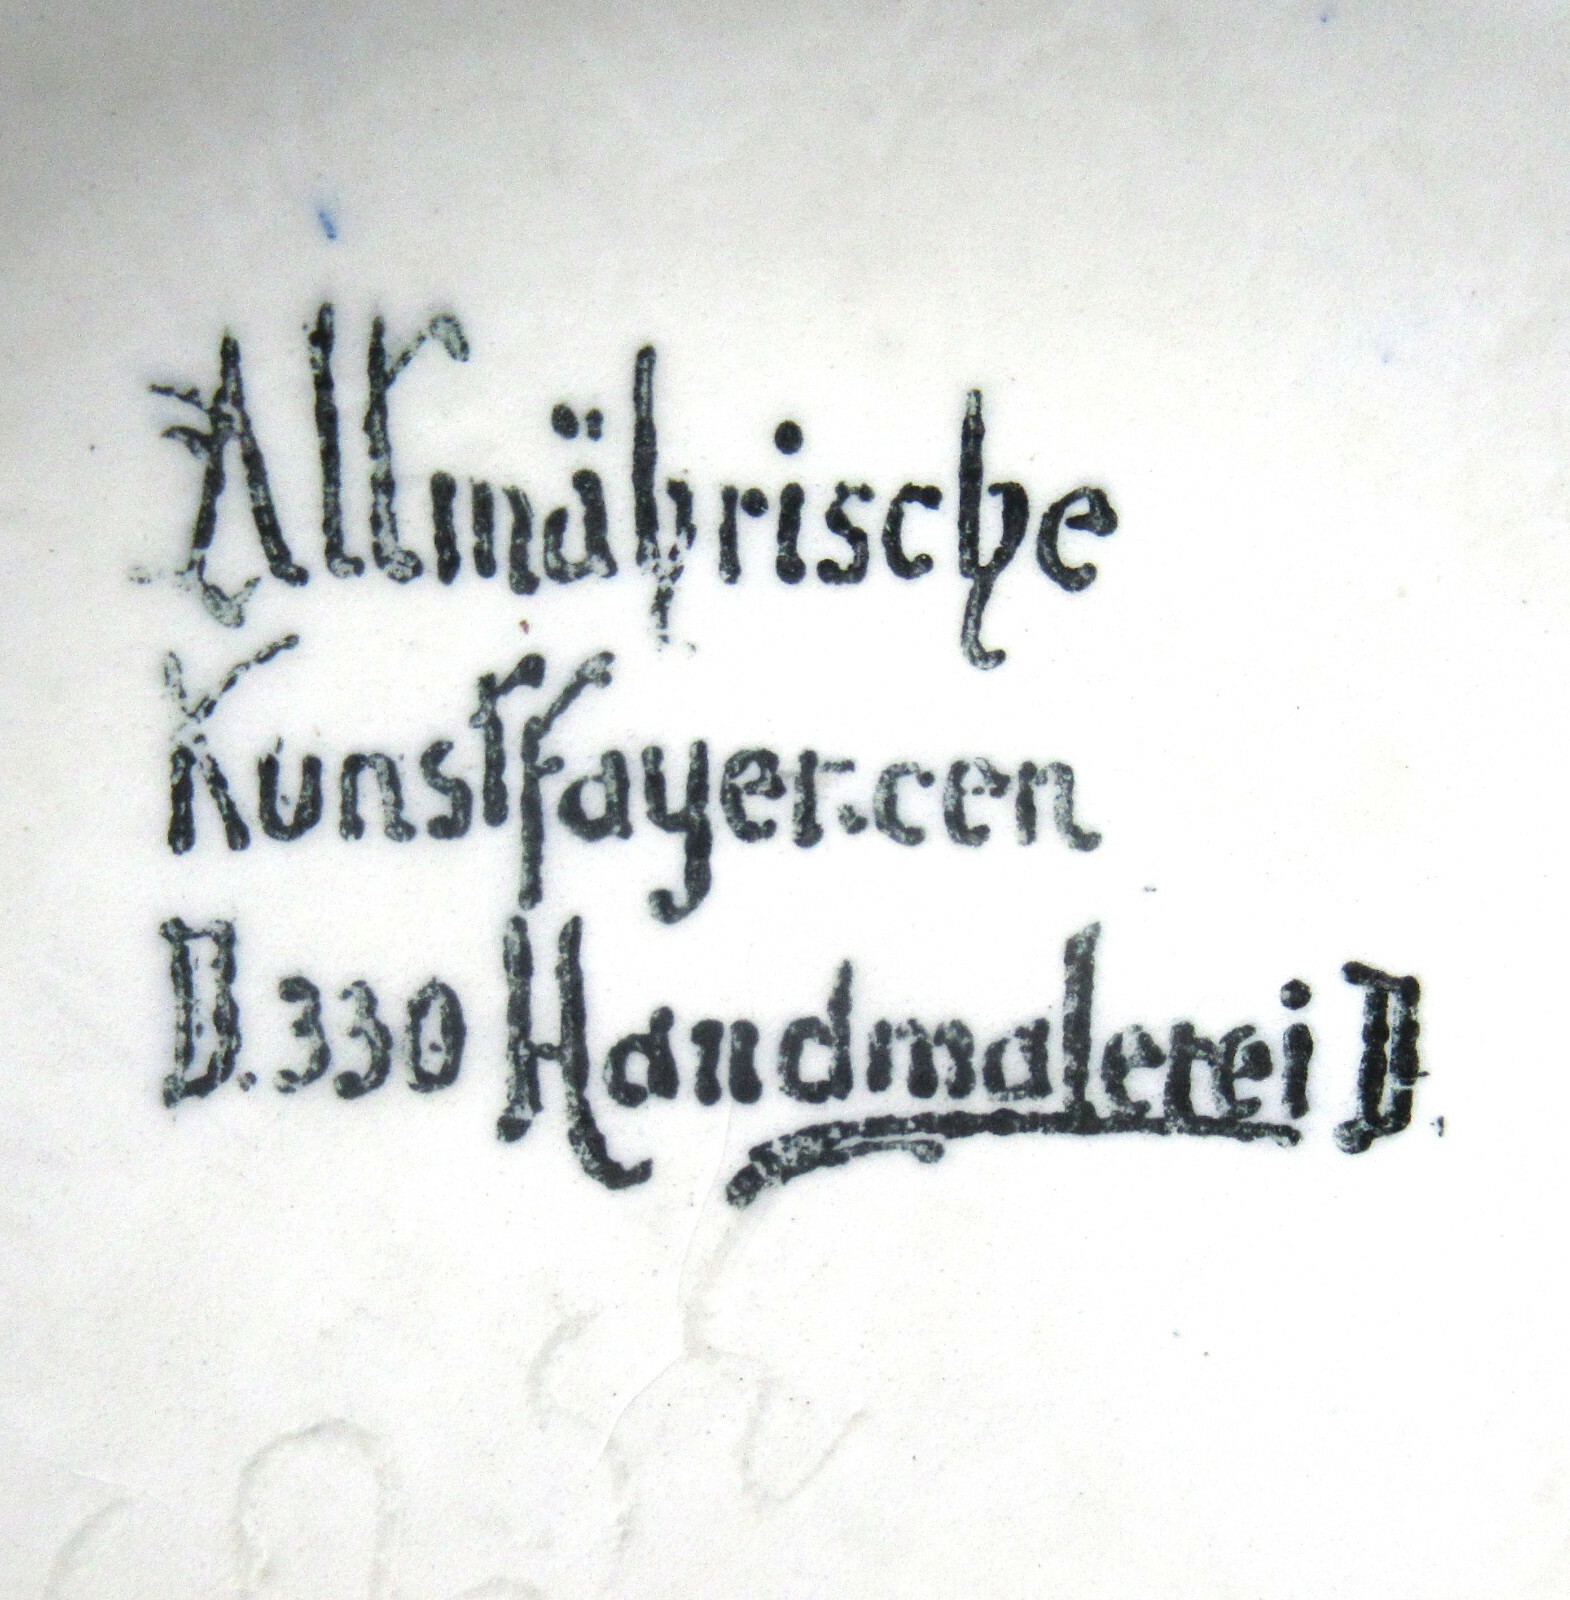 Altmährische
Kunstfayencen
D.330 Handmalerei D.